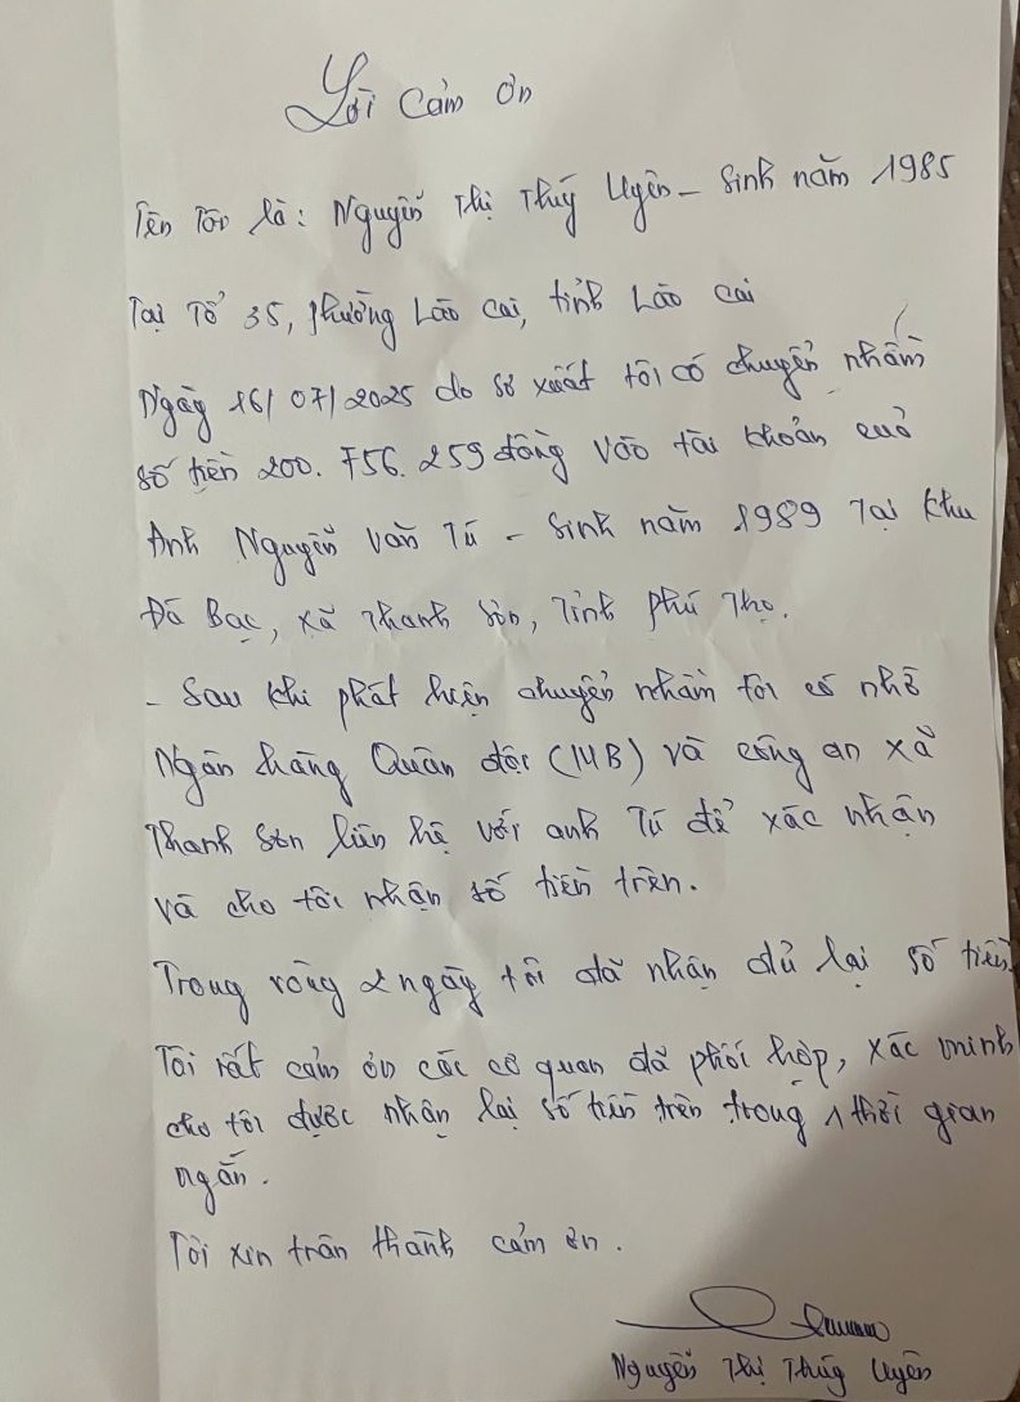 Lời cảm ơn
Tên tôi là: Nguyễn Thị Thúy Uyên - Sinh năm 1985
Tại Tổ 35, phường Lào Cai, tỉnh Lào Cai
Ngày 16/07/2025 do sơ xuất tôi có chuyển nhầm
số tiền 200.756.259 đồng vào tài khoản của
Anh Nguyễn Văn Tú - Sinh năm 1989 Tại khu
Đá Bạc, xã Thanh Sơn, Tỉnh Phú Thọ.
- Sau khi phát hiện chuyển nhầm tôi có nhờ
Ngân hàng Quân đội (MB) và công an xã
Thanh Sơn liên hệ với anh Tú để xác nhận
và cho tôi nhận số tiền trên.
Trong vòng 2 ngày tôi đã nhận đủ lại số tiền.
Tôi rất cảm ơn các cơ quan đã phối hợp, xác minh
cho tôi được nhận lại số tiền trên trong 1 thời gian
ngắn.
Tôi xin trân thành cảm ơn.
Nguyễn Thị Thúy Uyên